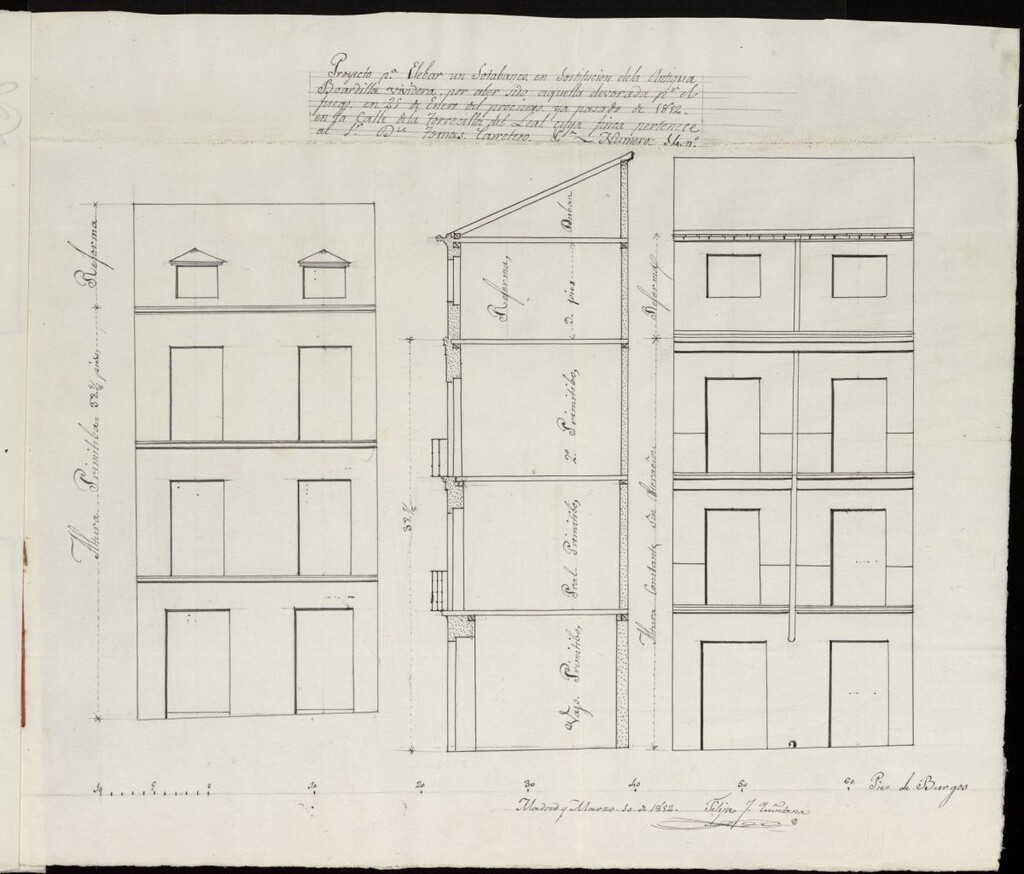 Proyecto p.ª Elebar un Sotabanco, en Sostitucion dela Antigua
Boardilla vividera, por aber sido aquella devorada p.r el
fuego, en 25 de Enero del procsimo ya pasado de 1852.
en la Calle de la Torrecilla del Leal, cuya finca pertenece
al Sr. Dn. Tomas Carretero. Numero 34 n.º
Reforma
Altura Primitiba 32 ½ pies
32 ½
Reforma,
9 pies
Duban
2º Primitibo,
Pral. Primitibo,
Vajo. Primitibo,
Reforma
Altura Constante Sin Alteracion
10 5 0 10 20 30 40 50 60 Pies de Burgos
Madrid y Marzo 10 de 1852. Felipe J. Quintana